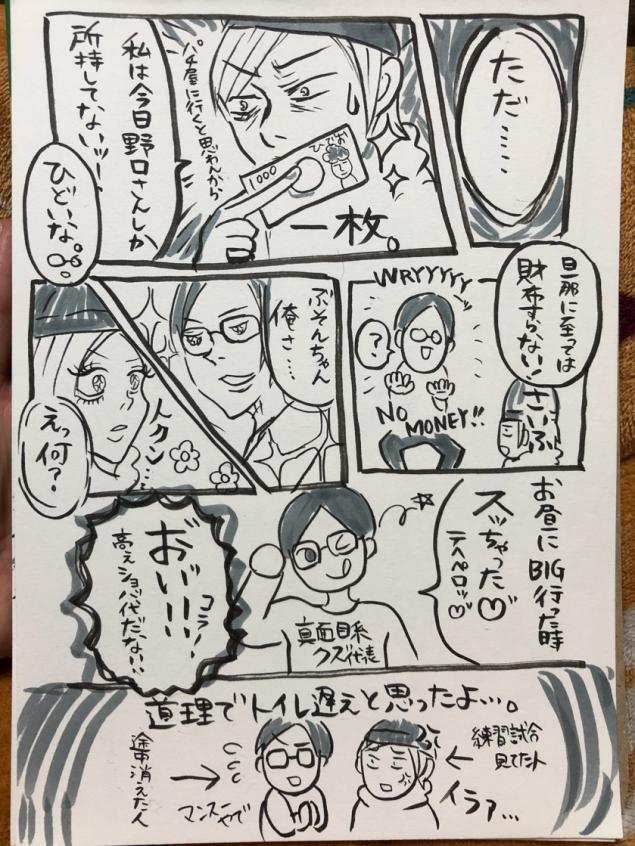 ただ……
パチ屋に行くと思わんから
私は今日野口さんしか
所持してないッ…
1000
ひでお
一枚。
ひどいな。
旦那に至っては
財布すらない！
さいふ
WRYYYYY
?
NO MONEY!!
ぶそんちゃん
俺さ…
トクン…
えっ何?
お昼にBIG行った時
スッちゃった♡
テヘペロッ♡
真面目系
クズ代表
おい!!!
コラァ!
高えショバ代だない、、
道理でトイレ遅えと思ったよ…。
練習試合
見てた人
イラァ…
途中消えた人
マンスーやで